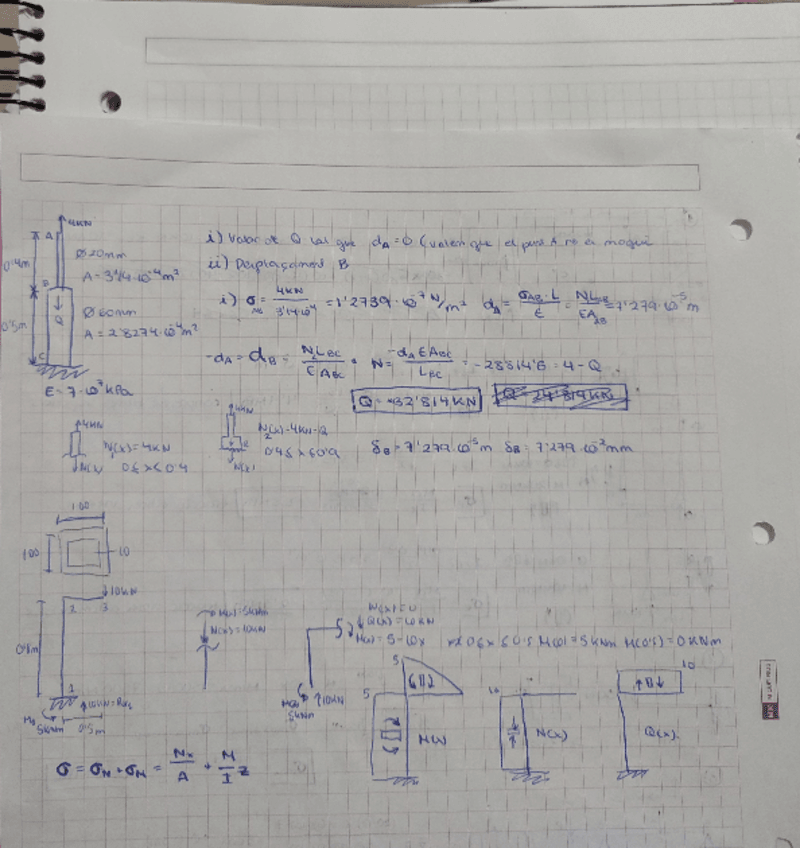 4KN
A
Ø20mm
A= 3'14·10⁻⁴m²
0'4m
B
Q
Ø60mm
A= 2'8274·10⁻⁴m²
0'5m
C
E=7·10⁷kPa
i) Valor de Q tal que dA=0 (valen que el punt A no es mogui
ii) Desplaçament B
i) σ = 4KN / 3'14·10⁻⁴ = 1'2739·10⁻⁷ N/m² dA = σAB·L / E = N LAB / E AAB = 7'279·10⁻⁵m
-dA = dB = N₂LBC / E ABC · N = -dA E ABC / LBC = -28814'6 = 4-Q
Q = 32'814KN Q = 24'814KN
4KN
N₁(x)=4KN
N(x)
0≤x≤0.4
4KN
N₂(x)=4KN-Q
N(x)
0.4≤x≤0.9
δB = 7'279·10⁻⁵m δB = 7'279·10⁻²mm
100
100
10
10KN
2 3
1
10KN=
5KNm
0.5m
M(x)=5KNm
N(x)=10KN
N(x)=0
Q(x)=10KN
M(x)= 5-10x 0≤x≤0.5 M(0)=5KNm M(0.5)=0KNm
10KN
5KNm
5
5
M(x)
10
N(x)
10
Q(x)
σ = σN + σM = Nx / A + M / I z